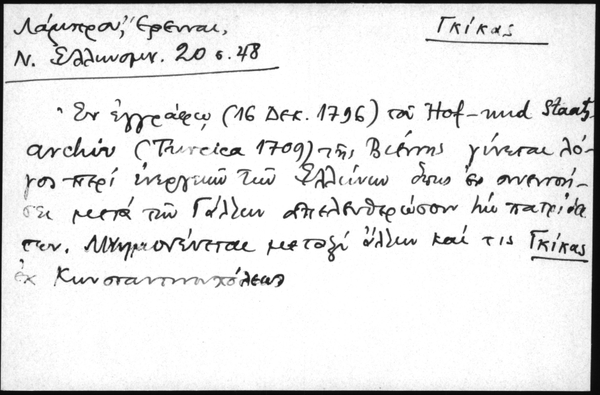 Λάμπρου, Ἔρευναι, Γκίκας
Ν. Ἑλληνομν. 20 σ. 48
Ἐν ἐγγράφῳ (16 Δεκ. 1796) τοῦ Hof-und Staats
archiv (Turcica 1709) τῆς Βιέννης γίνεται λό-
γος περί ἐνεργειῶν τῶν Ἑλλήνων ὅπως ἐν συνεννοή-
σει μετά τῶν Γάλλων ἀπελευθερώσουν τήν πατρίδα
των. Μνημονεύεται μεταξύ ἄλλων καί τις Γκίκας
ἐκ Κωνσταντινουπόλεως